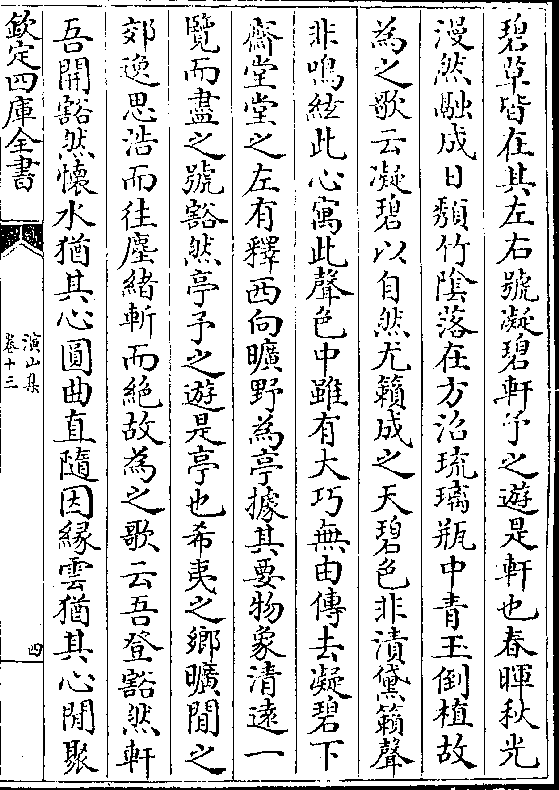 碧草皆在其左右號凝碧軒予之遊是軒也春暉秋光
漫然融成日頽竹陰落在方沼琉璃瓶中青玉倒植故
為之歌云凝碧以自然尤籟成之天碧色非漬黛籟聲
非鳴絃此心寓此聲色中雖有大巧無由傳去凝碧下
齋堂堂之左有釋西向曠野為亭據其要物象清遠一
覽而盡之號豁然亭予之遊是亭也希夷之鄉曠閒之
郊逸思浩而往塵緒斬而絶故為之歌云吾登豁然軒
吾開豁然懷水猶其心圓曲直隨因緣雲猶其心閒聚
欽定四庫全書
演山集
卷十三
四